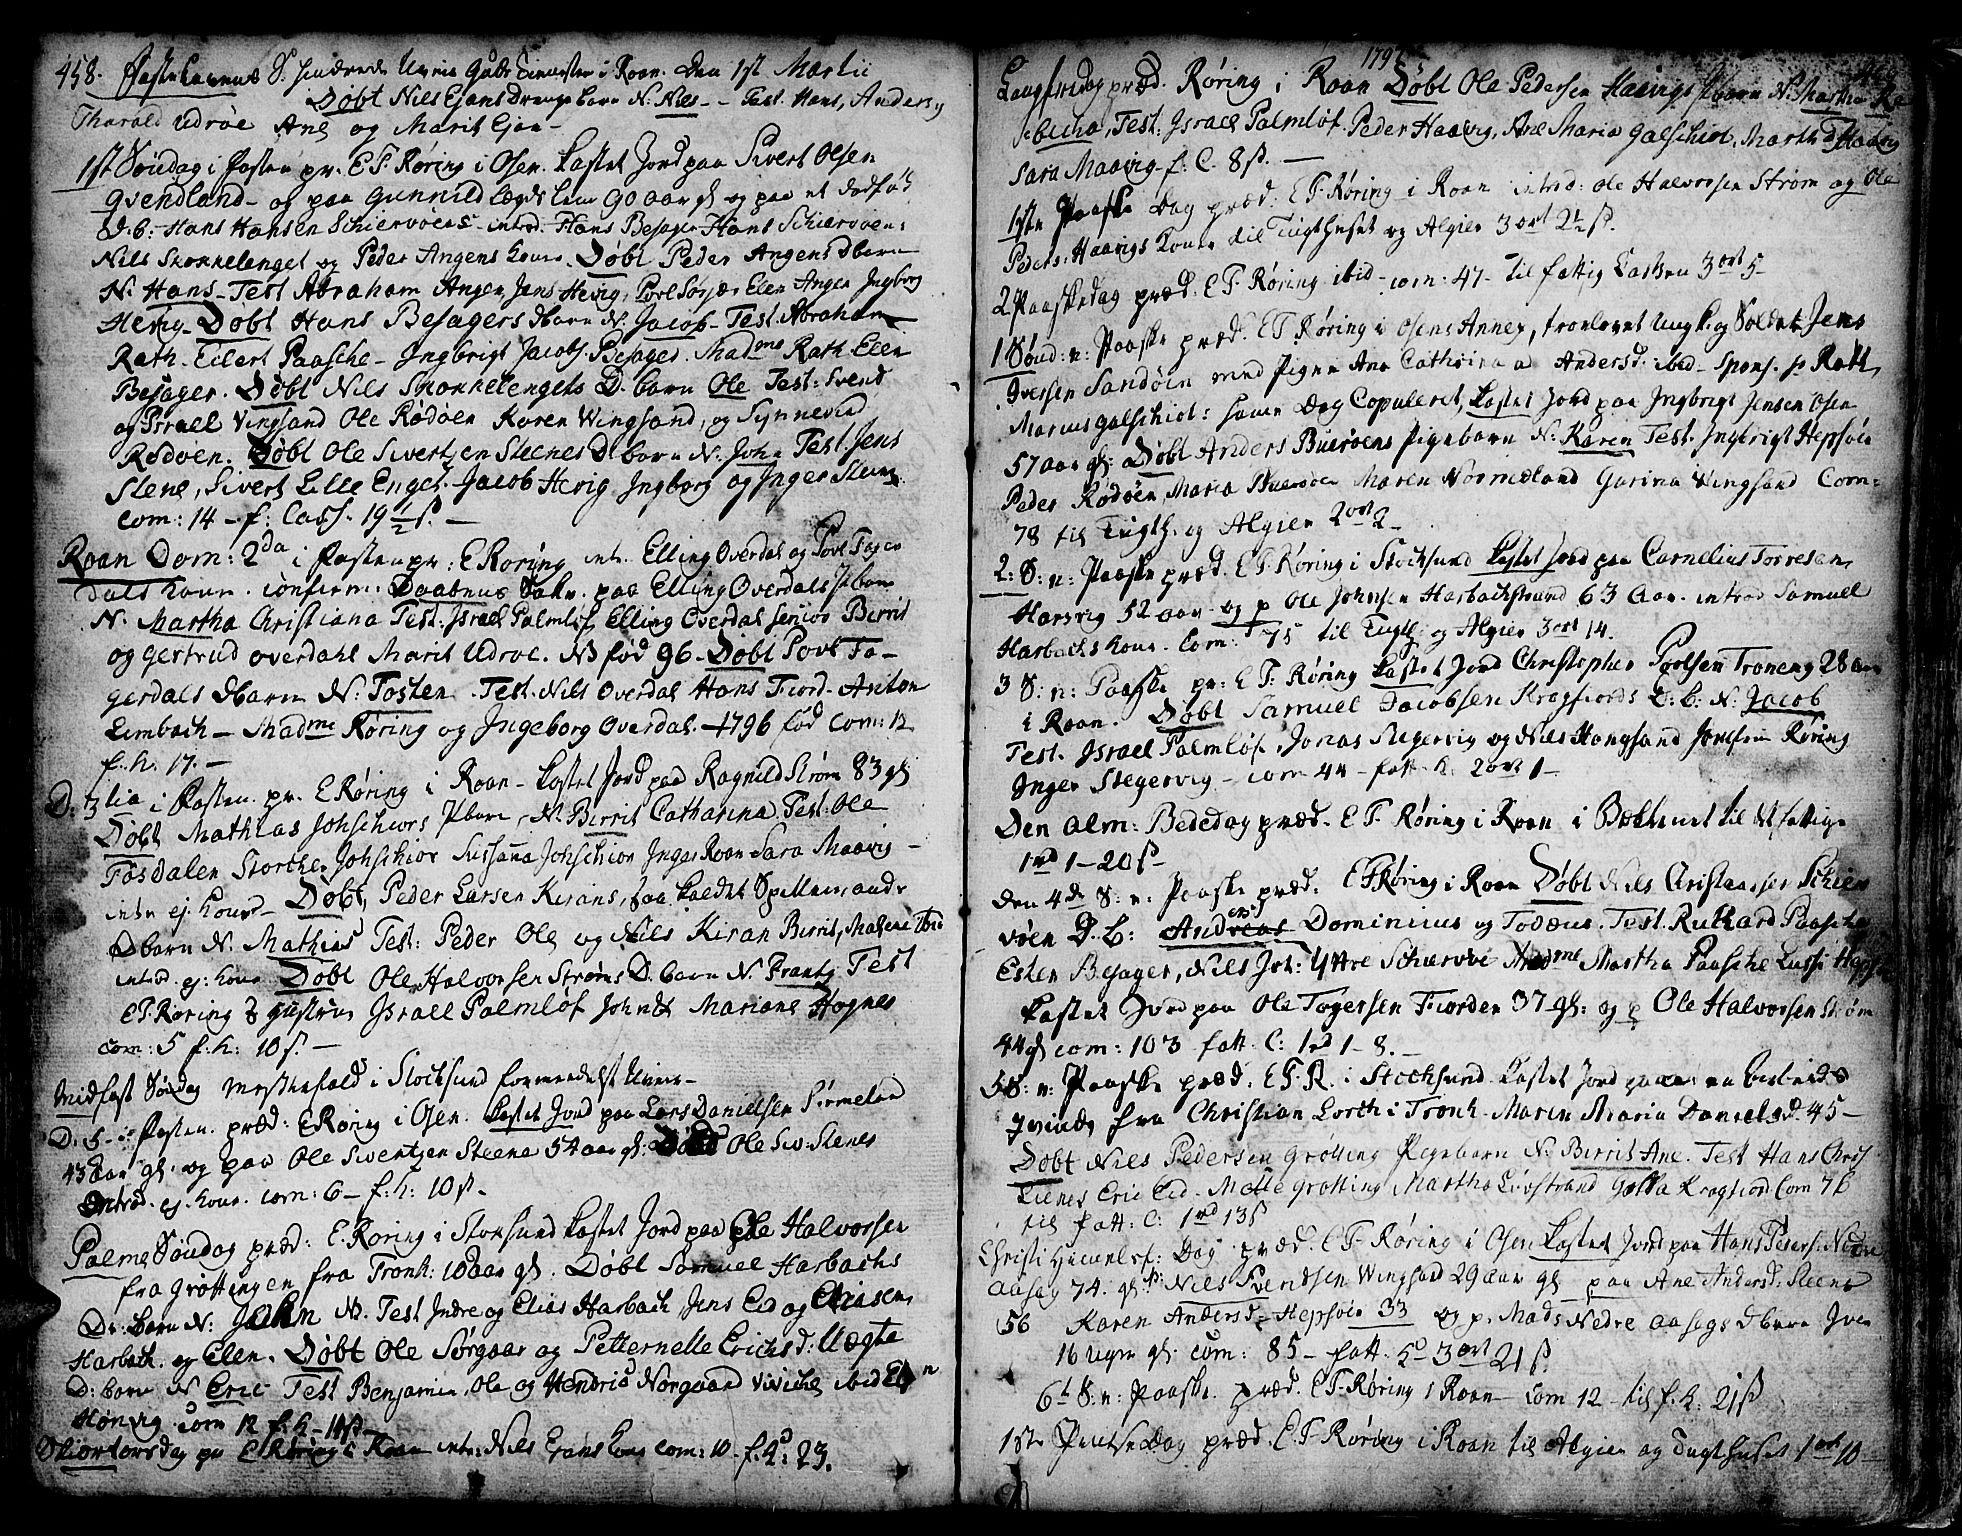 458. Fastelavens S. hindrede Uveir Guds Tienesten i Roan. Den 1st Martii
Døbt Nils Ejans Drengebarn N. Nils - Test. Hans, Anders,
Tharald Udrøe Ane og Marit Ejan -
1st Søndag i Fasten pr. E.F. Røring i Osen. Kastet Jord paa Sivert Olsen
Qvendland - og paa Gunnild Lægds Lem 90 aar gl og paa et dødfød
D.b: Hans Hansen Schiervøens - introd. Hans Besager Hans Schiervøen:
Nils Skonkelenget og Peder Angens koner. Døbt Peder Angens Dbarn
N. Hans - Test Abraham Angen, Jens Hevig, Povl Sørjer Elen Angen Ingborg
Hevig - Døbt Hans Besagers Dbarn N. Jacob - Test. Abraham
Rath. Eilert Paasche - Ingbrigt Jacobs. Besager. Madme Rath Elen
Besager. Døbt Nils Skonkelengets D. barn Ole Test: Svend
og Israel Vingsand Ole Rødøen Karen Wingsand, og Synnevid
Rødøen. Døbt Ole Swertsen Steenes D. barn N. John Test. Jens
Stene, Sivert Lille Enget. Jacob Hevig Ingborg og Inger Steen
Com: 14 - f: Cass. 19½ s. -
Roan Dom: 2da i Fasten pr: E Roring intr. Elling Overdal og Povl Fager
dals koner. confirm: Daabens Sakr. paa Elling Overdals Pbarn
N. Martha Christiana Test: Israel Palmløf Elling Overdal Senior Berrit
og Gertrud Overdahl Marit Udroe. NB fød 96 - Døbt Povl Fa-
gerdals Dbarn N. Tosten - Test. Nils Overdal Hans Fiord - Anton
Limbach - Madme Røring og Ingeborg Overdal - 1796 fød Com: 12
f. k. 17. -
D: 3tia i Fasten. pr. E Røring i Roan - Kastet Jord paa Ragnild Strøm 83 gl
Døbt Mathias Johschiors Pbarn, N. Birrit Catharina Test: Ole
Fosdalen Storther Johschior Sussana Johschior Inger Roan Sara Maavig -
intr ej kone - Døbt, Peder Larsen Kirans, saa kaldet Spelleman
Dbarn N. Mathias Test: Peder Ole og Nils Kiran Berrit, Malene ibid
introd. ej: kone Døbt Ole Halvorsen Strøms D. barn N. Frantz Test
E.F. Røring Israel Palmløf Mariane Hognes
com: 5 f: k: 10 s. -
Midfast Søndag Messefald i Stocksund formedelst Uveir -
D. 5 - i Fasten. præd: E Røring i Osen. Kastet Jord paa Lars Danielsen Sirmelan
43 aar gl. og paa Ole Swentsen Steene 54 aar gl: Døbt Ole Sw: Stenes
Introd. ej kone. com: 6 - f: k: 10 s.
Palme Søndag præd: E. Røring i Stoksund Kastet Jord paa Ole Halvorsen
fra Grøttingen fra Tronh: 18 aar gl. Døbt Samuel Harbachs
Dr: barn N: John N. Test Indre og Elias Harbach, Jens Eid og
Harbach. og Elen. Døbt Ole Sørgaar og Petternelle Erichsd: Uægte
D: barn N Eric Test Benjamin, Ole og Hendric Norgaard Viviche ibid Elen
Hønvig com 12 f. k - 14 s
Skiertorsdag pr E Røring i Roan intr: Nils Ejans kone com: 10 - f. k: 23.
1797
Langfredag præd. Røring i Roan Døbt Ole Pedersen Haavigs Pbarn N. Martha Re
becha, Test: Israel Palmløf. Peder Haavig, Ane Maria Galschiot. Marth Haavig
Sara Maavig - f: C. 8 s. -
1ste Paaske Dag præd: E.F. Røring i Roan introd: Ole Halvorsen Strøm og Ole
Peders. Haavigs Koner til Tugthuset og Algier 3 ort 2½ s.
2 Paaskedag præd: E.F. Røring ibid - com: 47 - til fattig Cassen 3 ort 5 -
1 Sønd: e: Paaske præd. E.F. Røring i Osens Annex, troelovet Ungk: og Soldat Jens
Iversen Sandøen med Pigen Ane Cathrina Andersd: ibid - Spons. hr Rath,
Marcus Galschiot: samme Dag Copuleret, Kastet Jord paa Ingbrigt Jensen Osen
57 aar gl: Døbt Anders Buerøens Pigebarn N: Karen Test. Ingbrigt Hepsøe
Peder Rødøen Maria Buerøen Maren Normeland Gurina Wingsand Com:
78 til Tugth. og Algier 2 ort 2 -
2: S: e: Paaske præd. E.F. Røring i Stocksund Kastet Jord paa Cornelius Torresen
Harsvig 52 aar - og p Ole Johnsen Harbachsund 63 Aar. introd Samuel
Harbachs kone - Com: 75 til Tugth: og Algier 3 ort 14.
3 S: e: Paaske pr: E.F. Røring Kastet Jord Christopher Povlsen Troneng 28 aar
i Roan. Døbt Samuel Jacobsen Kragfiords D: b: N: Jacob
Test. Israel Palmløf, Jonas Stegervig og Nils Hongsand Jomfrue Røring
Inger Stegervig - com 44 - fatt. k. 2 ort 1 -
Den alm: Bededag præd. E.F. Røring i Roan i Bekkenet til det fattige
1 rd 1 - 20 s -
den 4de S: e: Paaske præd. E.F. Røring i Roan Døbt Nils Christiansen Schier
vøen D. b: Andreas Dominicus og Todæus. Test. Ruthard Paasche
Esten Besager, Nils Joh: Yttre Schiervøe Madme Martha Paasche Lussi Hepsøe
Kastet Jord paa Ole Togersen Fiorden 37 gl: og p Ole Halvorsen Strøm
44 gl com: 103 fatt. C: 1 rd 1 - 8. -
5 S: e: Paaske præd. E.F.R. i Stocksund Kastet Jord paa en Arbeids
qvinde fra Christian Lorth i Tronh. Maren Maria Danielsd. 45 -
Døbt Nils Pedersen Grøtting Pigebarn N. Birrit Ane. Test Hans Chris
Lienes Eric Eid - Mette Grøtting Martha Løvstrand Golla Kragfiord Com 76
til fatt: C: 1 rd 13 s
Christi Himmelf: Dag præd. E.F. Røring i Osen Kastet Jord paa Hans Peders. Nedre
Aasag 74. gl: Nils Svendsen Wingsand 29 aar gl - paa Ane Andersd: Steene
56 Karen Andersd - Hepsøe 33 og p. Mads Nedre Aasags Dbarn Iver
16 uger gl: com: 85 - fatt. 3 ort 21 s.
6t S. e: Paaske. præd. E.F. Røring i Roan - com 12 - til f. k: 21 s
1ste Pintsedag præd. E.F. Røring i Roan til Algier og Tugthuset 1 ort 10 -